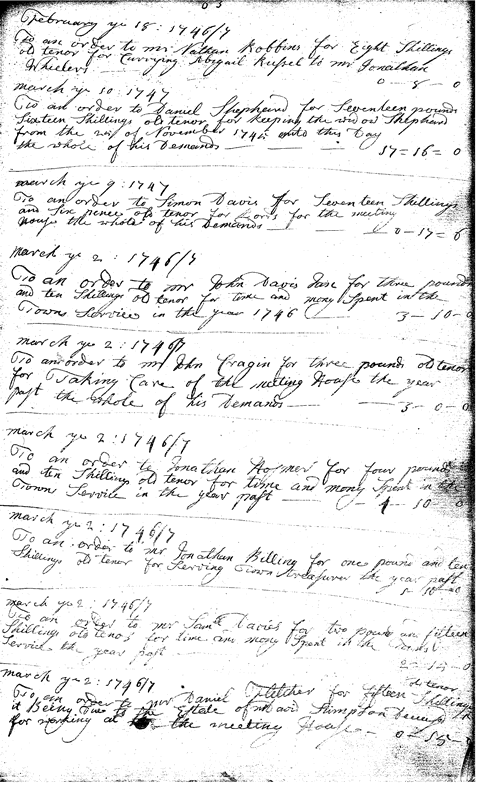 63
February ye 18 : 1746/7
To an order to mr Nathan Robbins for Eight Shillings
old tenor for Currying Abigail Russel to mr Jonathan
Wheelers 0 - 8 0
march ye 10 : 1747
To an order to Daniel Shephard for Seventeen pounds
Sixteen Shillings old tenor for keeping the widow Shephard
from the of November 1746 unto this Day
the whole of his Demands 17 = 16 = 0
march ye 9 : 1747
To an order to Simon Davis for Seventeen Shillings
and Six pence old tenor for for the meeting
house the whole of his Demands 0 - 17 = 6
march ye 2 : 1746/7
To an order to mr John Davis for three pounds
and ten Shillings old tenor for time and mony Spent in the
Towns Service in the year 1746 3 - 10 - 0
march ye 2 : 1746/7
To an order to mr John Cragin for three pounds old tenor
for Taking Care of the meeting House the year
past the whole of his Demands 3 - 0 - 0
march ye 2 : 1746/7
To an order to Jonathan Hosmer for four pounds
and ten Shillings old tenor for time and mony Spent in
Towns Service in the year past 4 - 10 0
march ye 2 : 1746/7
To an order to mr Jonathan Billing for one pound and ten
Shillings old tenor for Serving Town treasurer the year past
1 - 10 - 0
march ye 2 1746/7
To an order to mr Saml Davis for two pound and fifteen
Shillings old tenor for time and mony Spent in the
Service the year past 2 - 15 - 0
march ye 2 : 1746/7 old tenor
To an order to mr Daniel Fletcher for fifteen Shillings
it Being Due to the Estate of Stimpson
for working at the meeting House 0 - 15 -